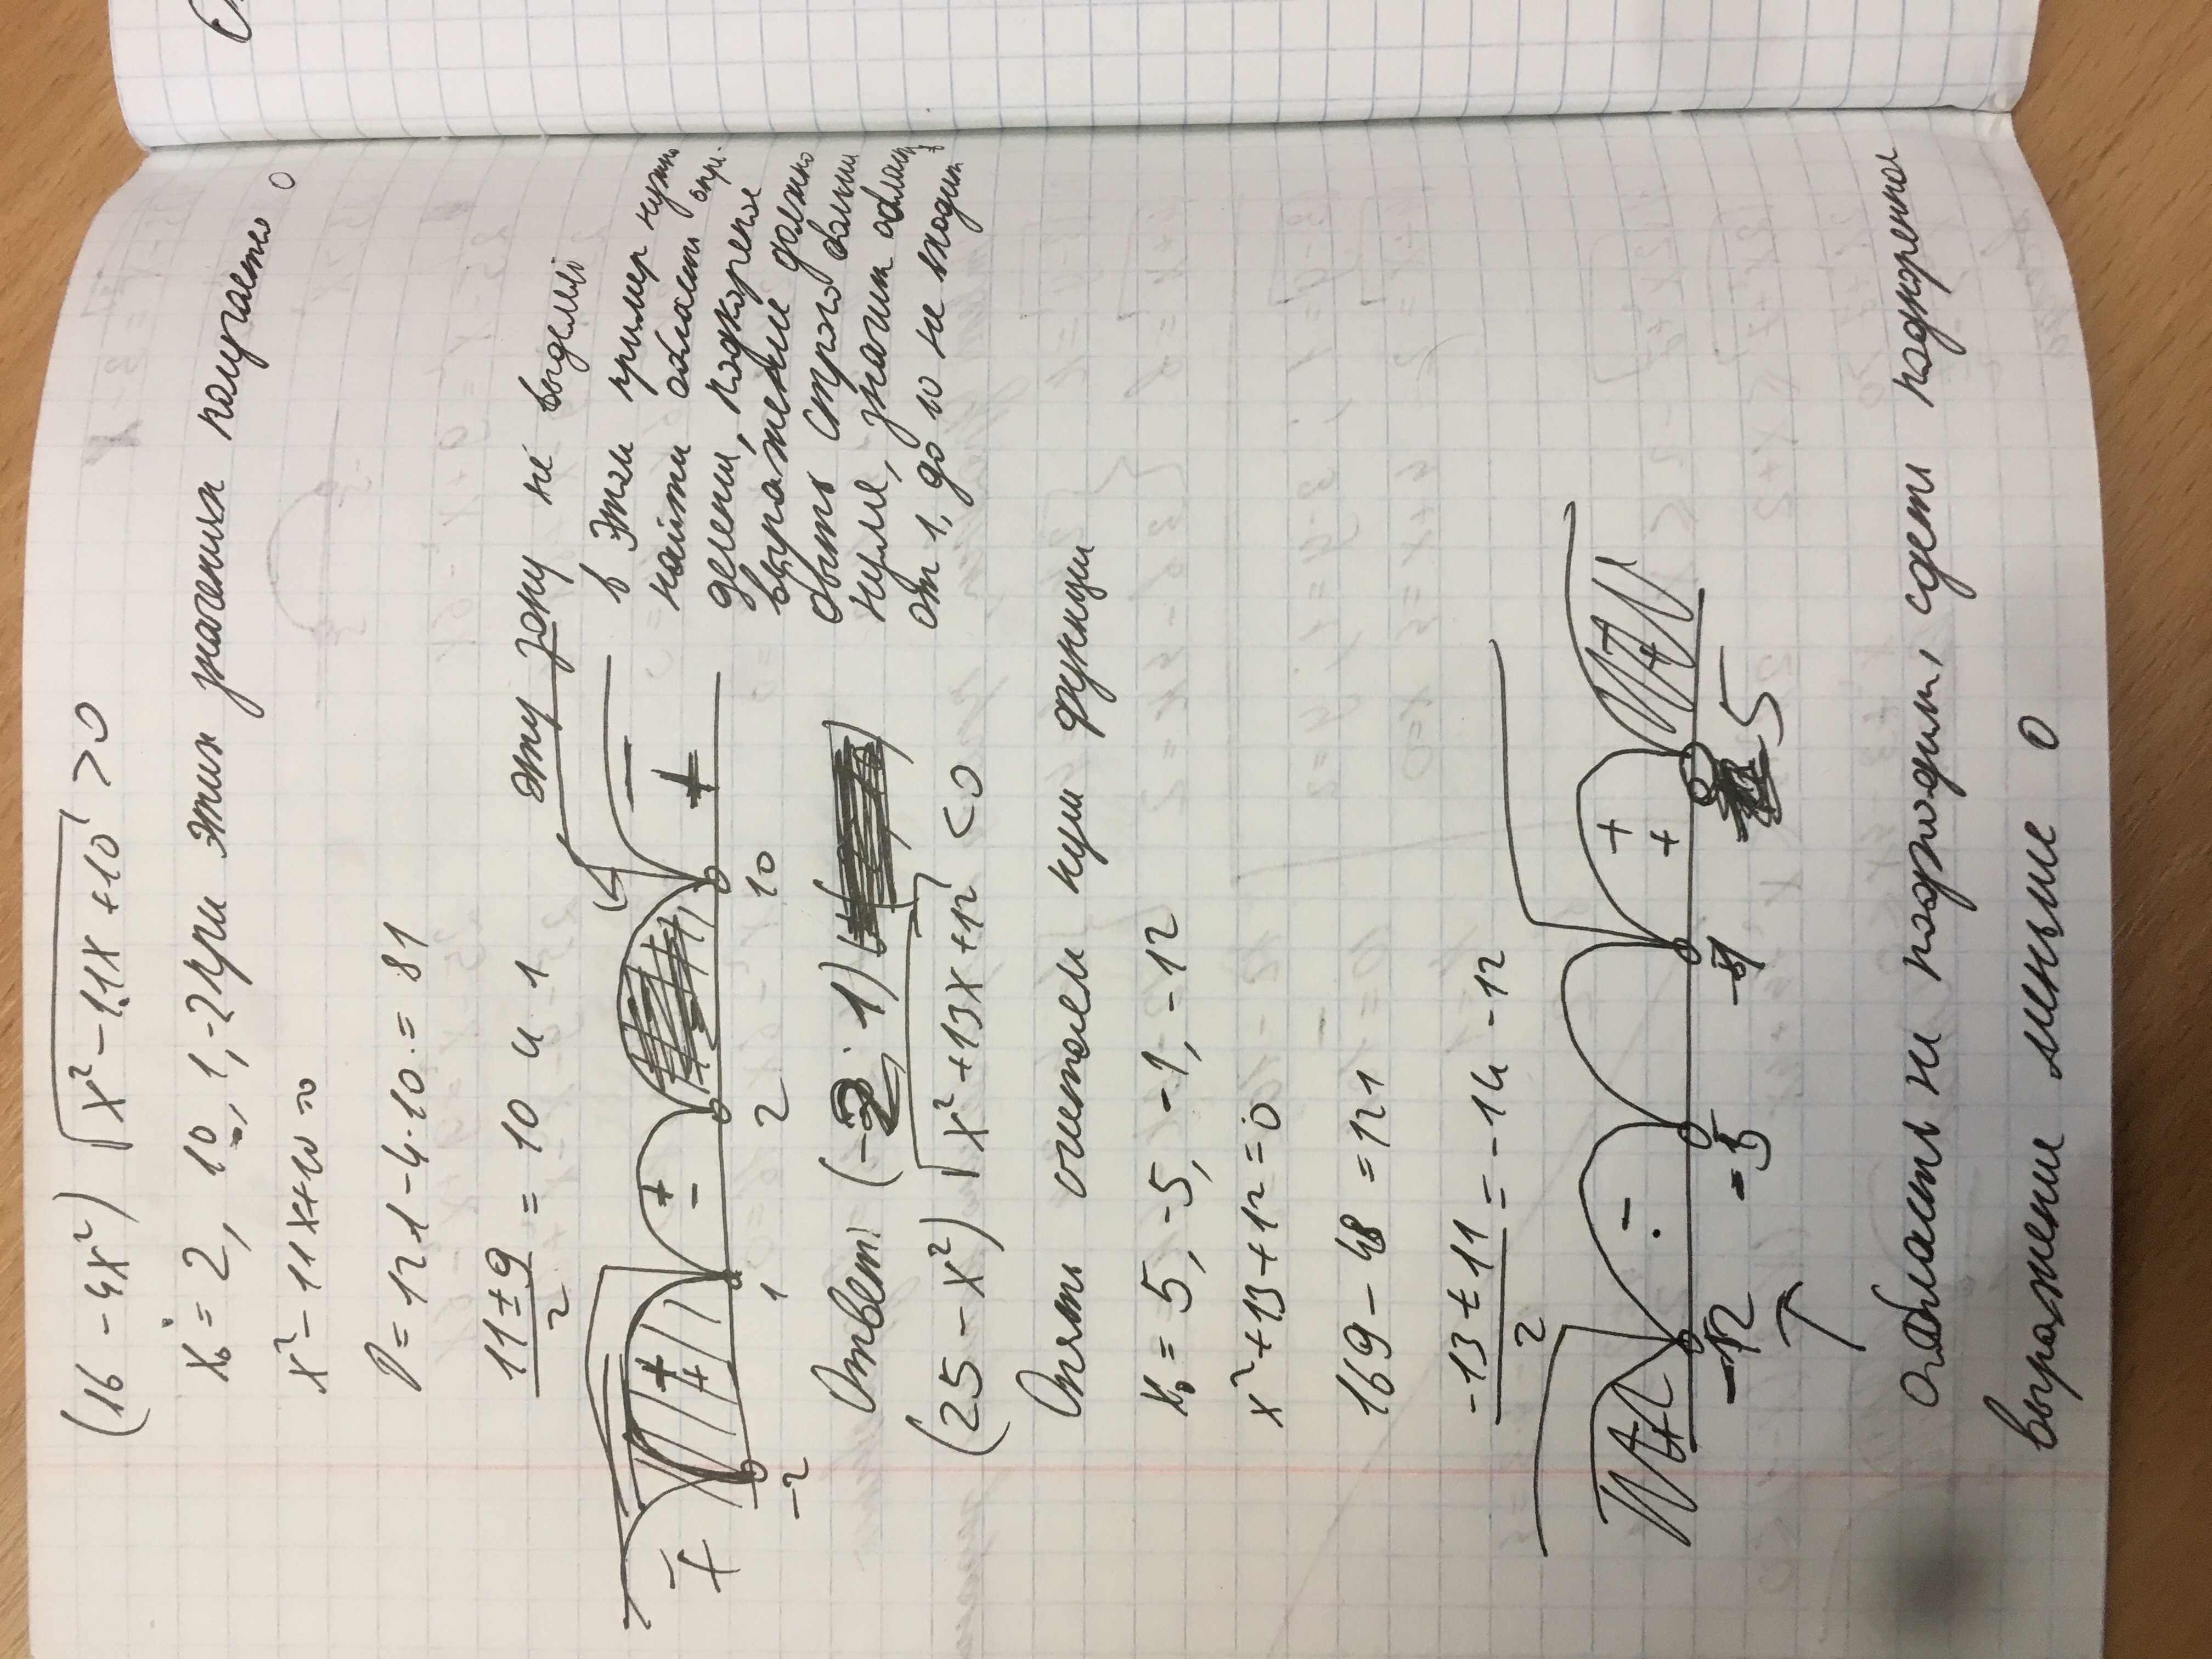 (16 - 4x²) √x² - 11x + 10 > 0
x₀ = 2, 10, 1, -2 при этих значениях получается 0
x² - 11x + 10 = 0
D = 121 - 4·10 = 81
11 ± 9 / 2 = 10 и 1
эту зону не выделяй
в этом пример нужно
найти област опр.
делени, подкореное
выражение должно
быть строго больши
нуля, значит област
от 1, до 10 не входит
+ - + + + - + -
-2 1 2 10
Ответ: (-2; 1)
(25 - x²) √x² + 13x + 12 < 0
Опять считаем нули функции
x₀ = 5, -5, -1, -12
x² + 13 + 12 = 0
169 - 48 = 121
-13 ± 11 / 2 = -1 и -12
+ - + + +
-12 -5 -1 5
Область не подходит, здеть подкоренное
выражени меньше 0